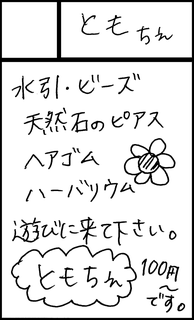 ともちぇ
水引・ビーズ
天然石のピアス
ヘアゴム
ハーバリウム
遊びに来て下さい。
ともちぇ
100円〜です。